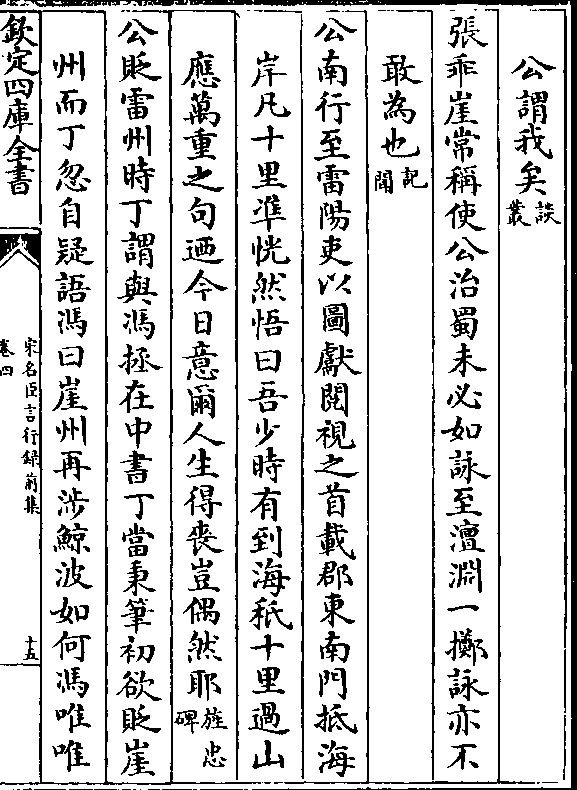 公謂我矣談叢
張乖崖常稱使公治蜀未必如詠至澶淵一擲詠亦不
敢為也記聞
公南行至雷陽吏以圖獻閱視之首載郡東南門抵海
岸凡十里準恍然悟曰吾少時有到海秖十里過山
應萬重之句迺今日意爾人生得喪豈偶然耶旌忠碑
公貶雷州時丁謂與馮拯在中書丁當秉筆初欲貶崖
州而丁忽自疑語馮曰崖州再涉鯨波如何馮唯唯
欽定四庫全書
宋名臣言行錄前集
卷四
十五